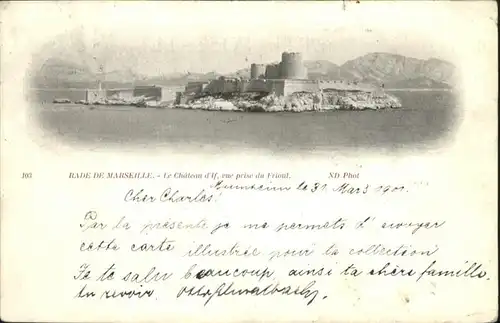 103 RADE DE MARSEILLE. - Le Château d'If, vue prise du Frioul. ND Phot
le 31 Mars 1901.
Cher Charles!
Par la présente je me permets d'envoyer
cette carte illustrée pour ta collection
Je te salu beaucoup, ainsi ta chère famille.
Au revoir,